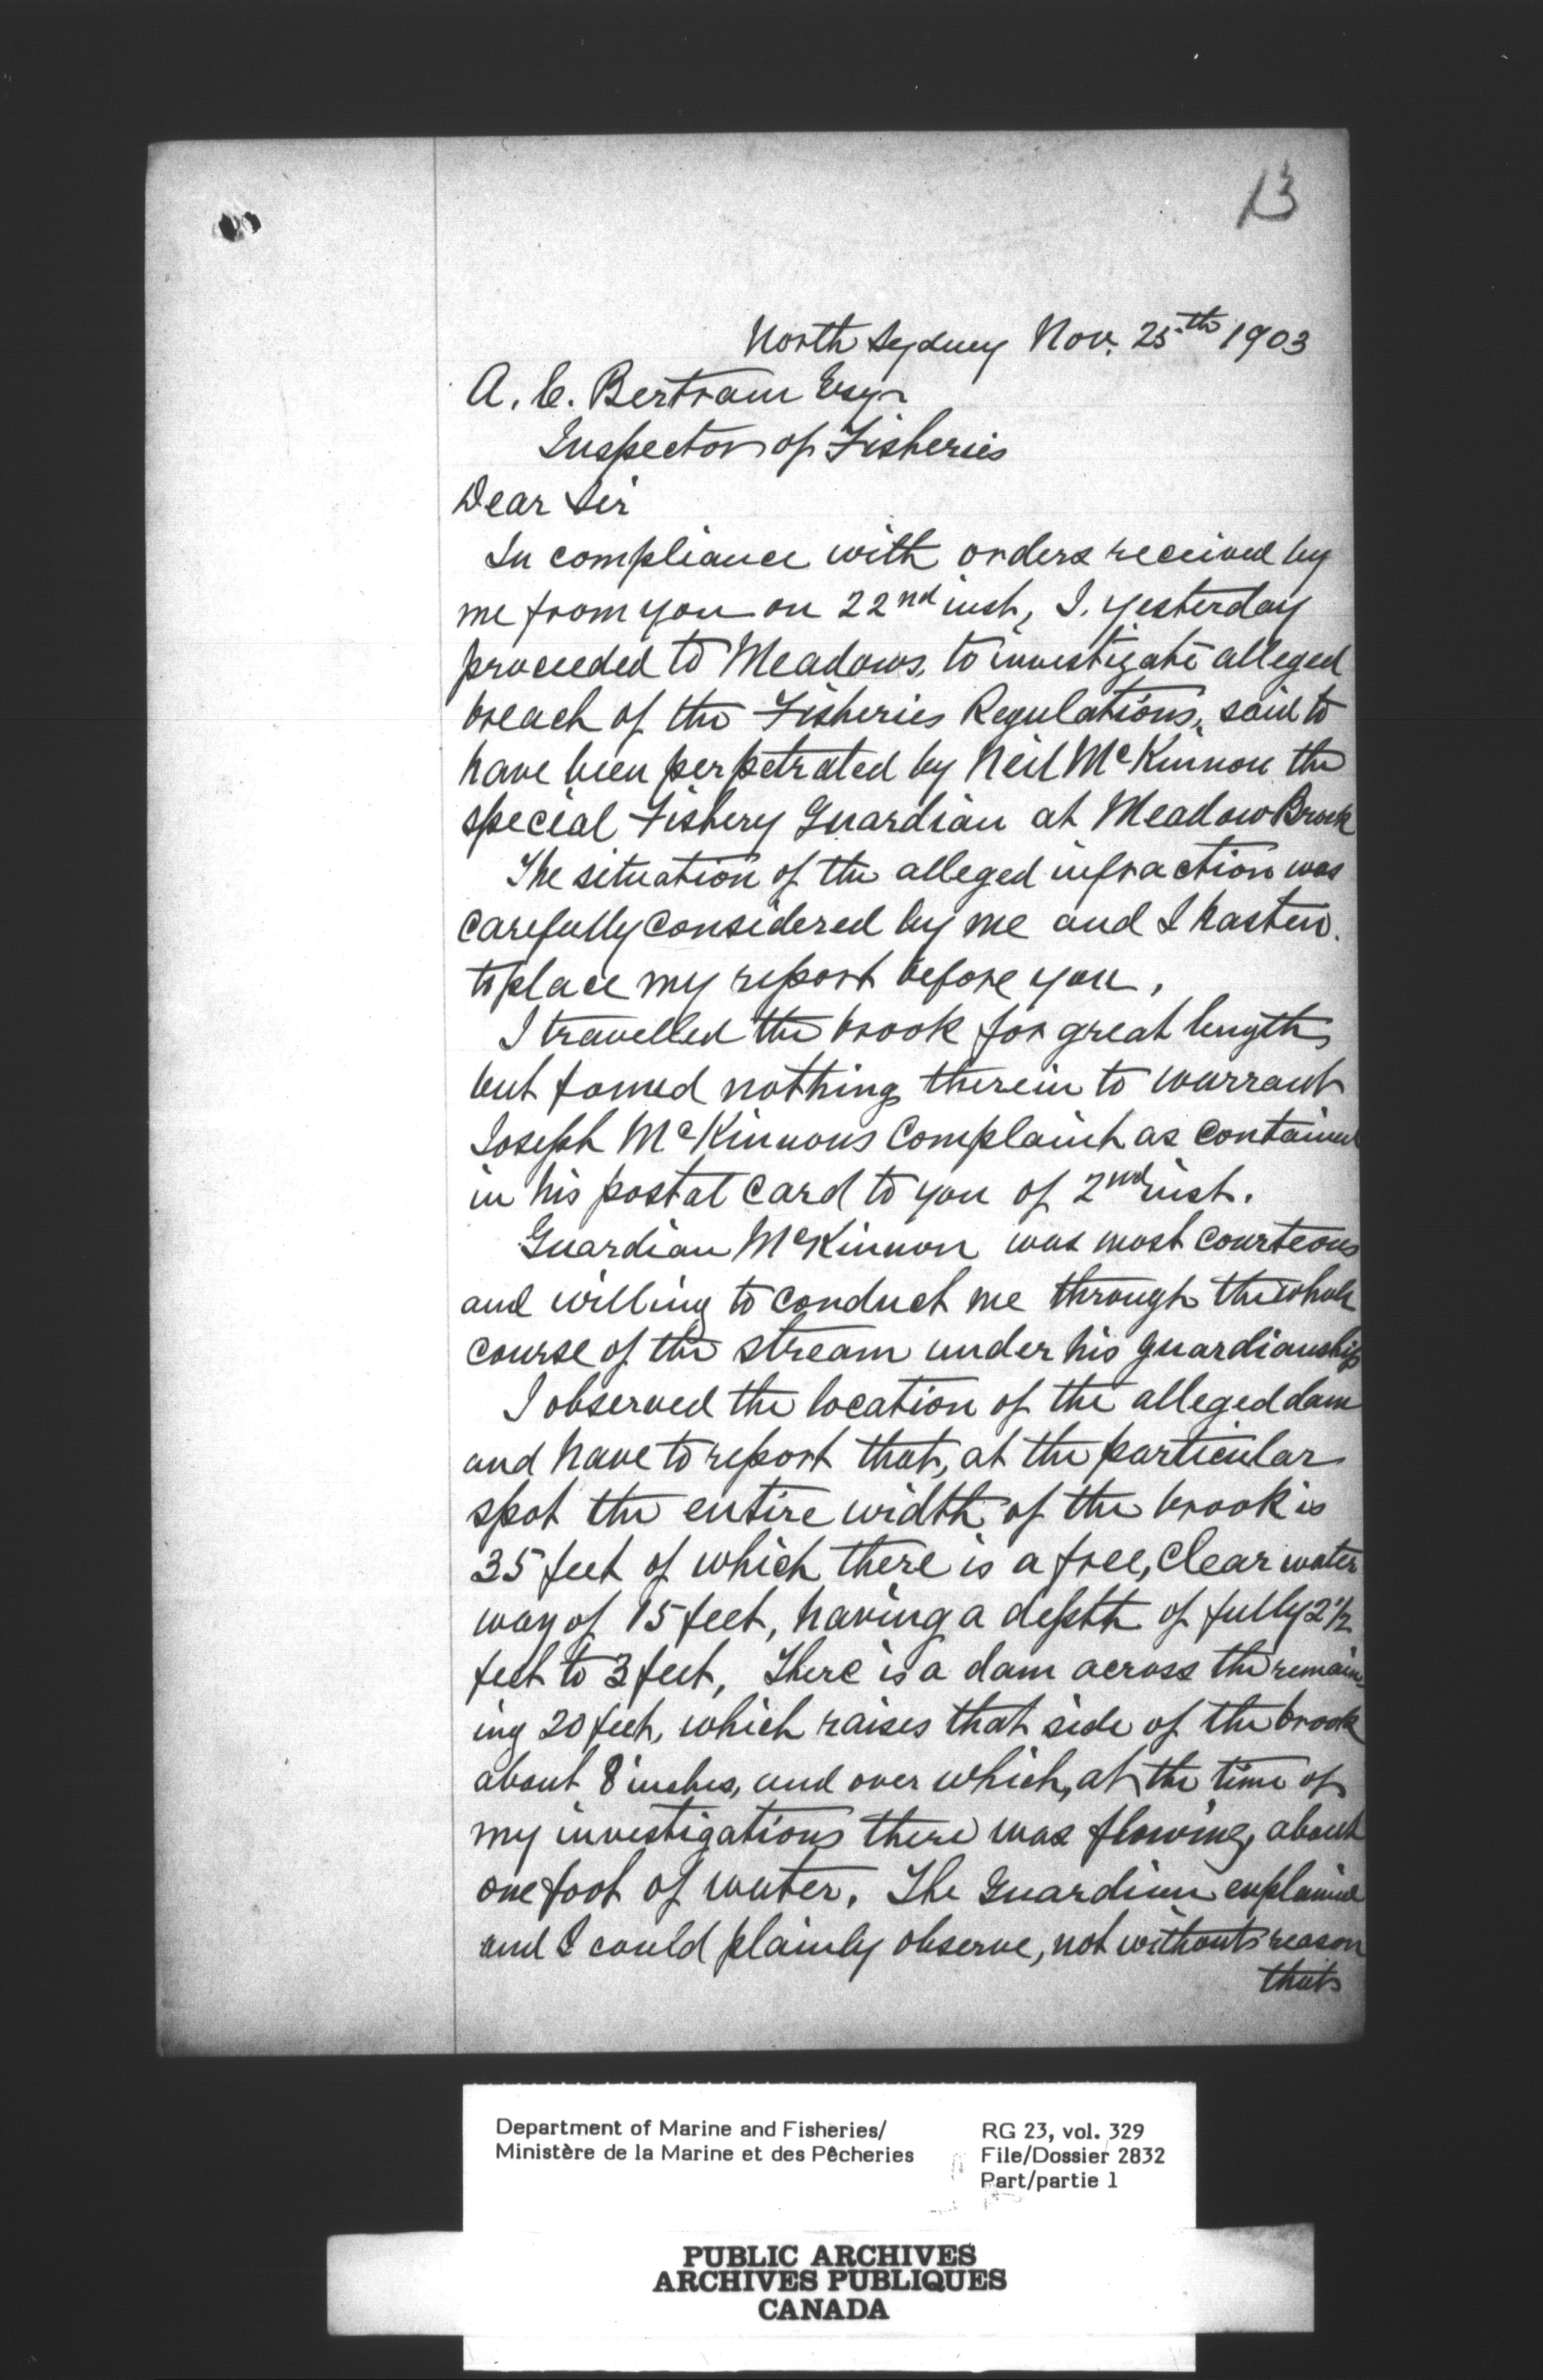 13
North Sydney Nov. 25th 1903
A. C. Bertram Esqr
Inspector of Fisheries
Dear Sir
In compliance with orders received by
me from you on 22nd inst, I. yesterday
proceeded to Meadows, to investigate alleged
breach of the Fisheries Regulations, said to
have been perpetrated by Neil McKinnon the
special Fishery Guardian at Meadow Brook
The situation of the alleged infraction was
carefully considered by me and I hasten
to place my report before you.
I travelled the brook for great length
but found nothing therein to warrant
Joseph McKinnons Complaint as contained
in his postal card to you of 2nd inst.
Guardian McKinnon was most courteous
and willing to conduct me through the whole
course of the stream under his guardianship
I observed the location of the alleged dam
and have to report that, at the particular
spot the entire width of the brook is
35 feet of which there is a free, clear water
way of 15 feet, having a depth of fully 2 1/2
feet to 3 feet, There is a dam across the remain-
ing 20 feet, which raises that side of the brook
about 8 inches, and over which, at the time of
my investigations there was flowing, about
one foot of water. The Guardian explained
and I could plainly observe, not without reason
that
Department of Marine and Fisheries/
Ministère de la Marine et des Pêcheries
RG 23, vol. 329
File/Dossier 2832
Part/partie 1
PUBLIC ARCHIVES
ARCHIVES PUBLIQUES
CANADA